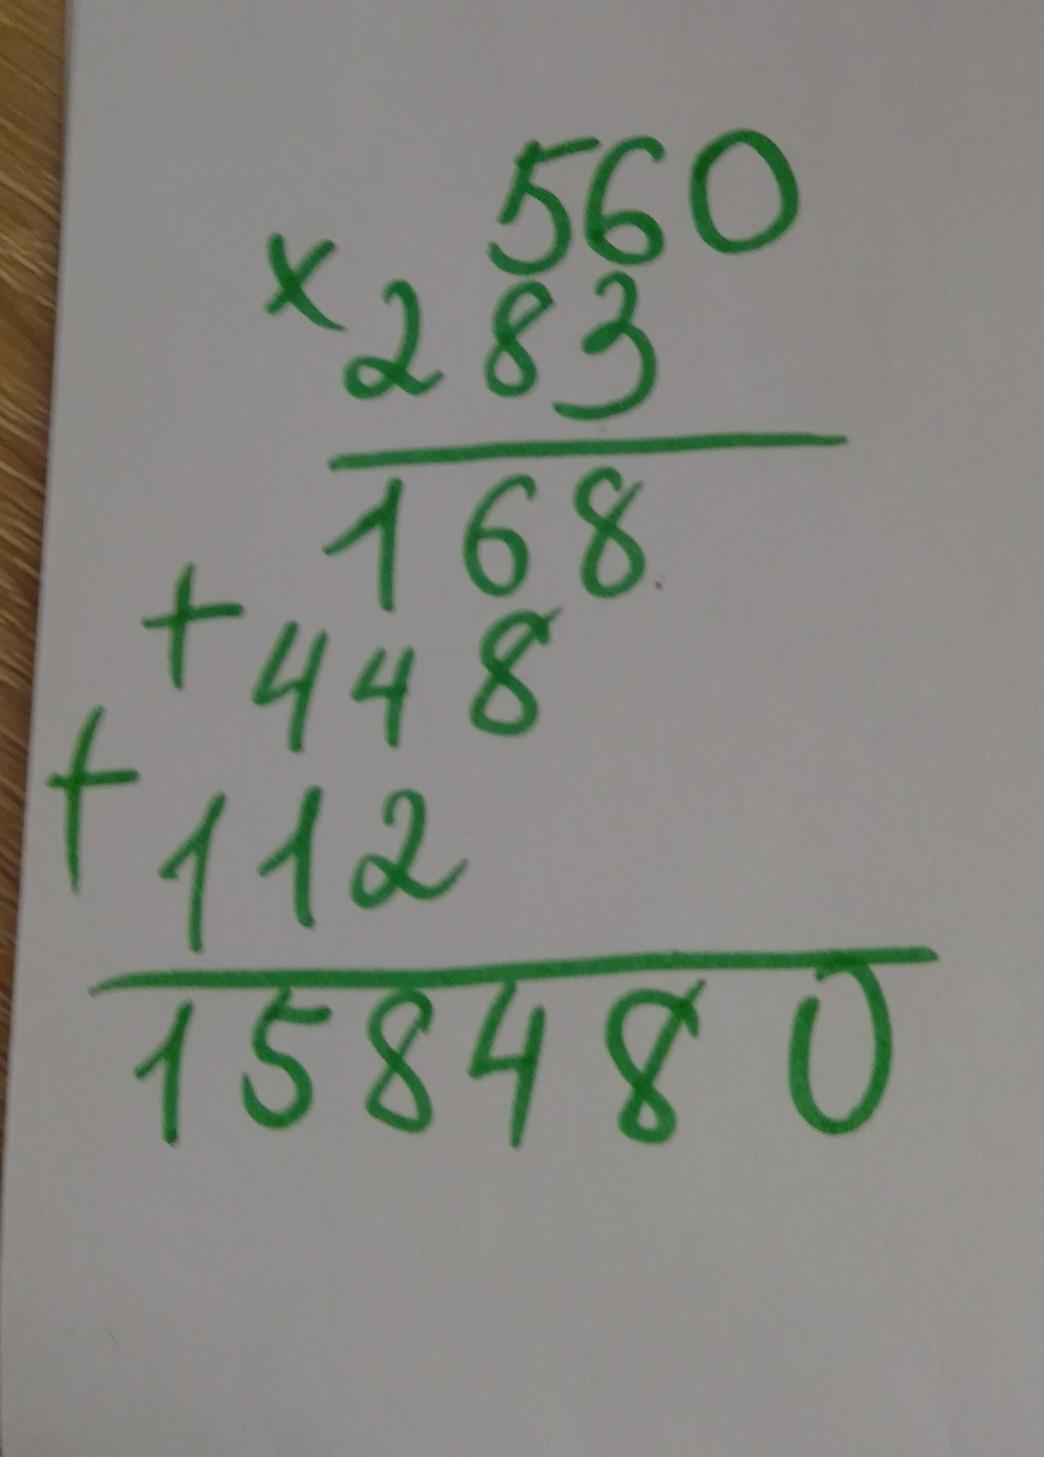 560
x 283
168
+ 448
+ 112
158480